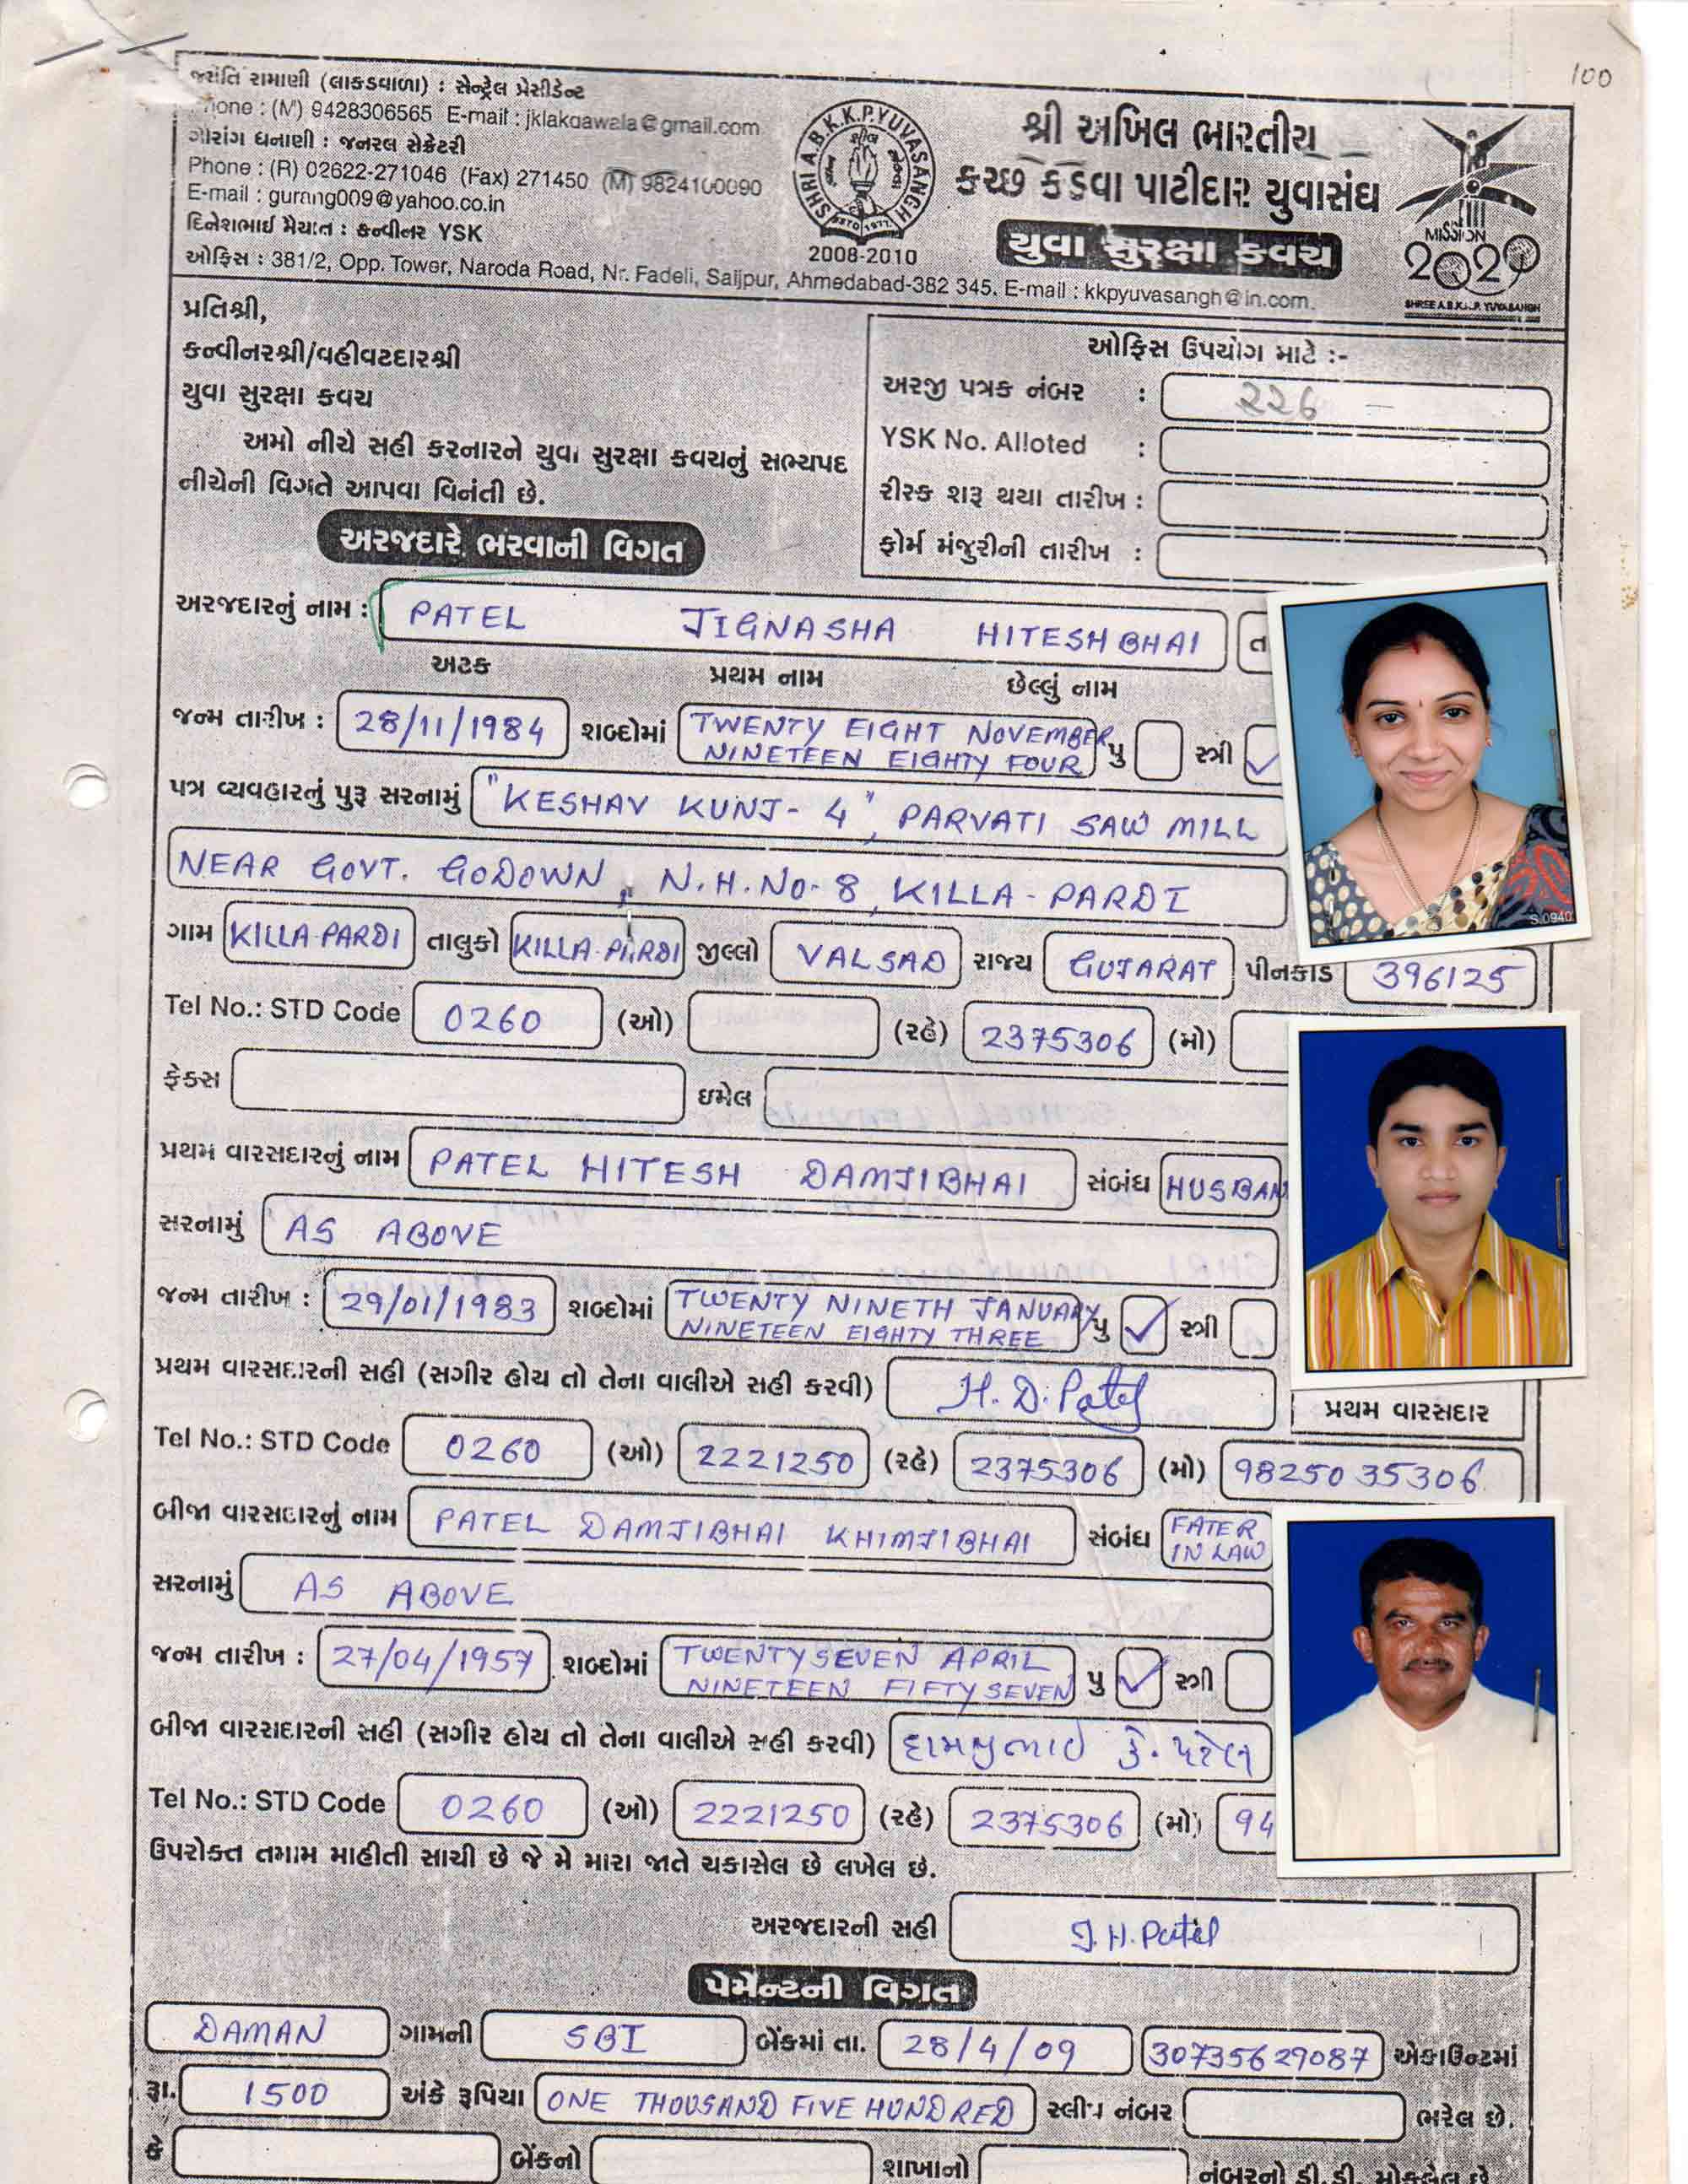 100
જયંતિ રામાણી (લાકડાવાળા) : સેન્ટ્રેલ પ્રેસીડેન્ટ
Phone : (M) 9428306565 E-mail : jklakdawala@gmail.com
ગૌરાંગ ધનાણી : જનરલ સેક્રેટરી
Phone : (R) 02622-271046 (Fax) 271450 (M) 9824100090
E-mail : gurang009@yahoo.co.in
દિનેશભાઈ મૈયાત : કન્વીનર YSK
SHRI A.B.K.K.P. YUVASANGH
ESTD 1977
2008-2010
શ્રી અખિલ ભારતીય
કચ્છ કડવા પાટીદાર યુવાસંઘ
યુવા સુરક્ષા કવચ
MISSION
2020
SHREE A.B.K.K.P. YUVASANGH
ઓફિસ : 381/2, Opp. Tower, Naroda Road, Nr. Fadeli, Saijpur, Ahmedabad-382 345. E-mail : kkpyuvasangh@in.com.
પ્રતિશ્રી,
કન્વીનરશ્રી/વહીવટદારશ્રી
યુવા સુરક્ષા કવચ
અમો નીચે સહી કરનારને યુવા સુરક્ષા કવચનું સભ્યપદ
નીચેની વિગતે આપવા વિનંતી છે.
ઓફિસ ઉપયોગ માટે :-
અરજી પત્રક નંબર : ૨૨૬
YSK No. Alloted :
રીસ્ક શરૂ થયા તારીખ :
ફોર્મ મંજુરીની તારીખ :
અરજદારે ભરવાની વિગત
અરજદારનું નામ : PATEL JIGNASHA HITESHBHAI ત
અટક પ્રથમ નામ છેલ્લું નામ
જન્મ તારીખ : 28/11/1984 શબ્દોમાં TWENTY EIGHT NOVEMBER NINETEEN EIGHTY FOUR પુ સ્ત્રી ✓
પત્ર વ્યવહારનું પુરૂ સરનામું "KESHAV KUNJ- 4", PARVATI SAW MILL
NEAR GOVT. GODOWN, N.H.No- 8, KILLA - PARDI
S.0940
ગામ KILLA-PARDI તાલુકો KILLA-PARDI જીલ્લો VALSAD રાજ્ય GUJARAT પીનકોડ 396125
Tel No.: STD Code 0260 (ઓ) (રહે) 2375306 (મો)
ફેક્સ ઇમેલ
પ્રથમ વારસદારનું નામ PATEL HITESH DAMJIBHAI સંબંધ HUSBAN
સરનામું AS ABOVE
જન્મ તારીખ : 29/01/1983 શબ્દોમાં TWENTY NINETH JANUARY NINETEEN EIGHTY THREE પુ ✓ સ્ત્રી
પ્રથમ વારસદારની સહી (સગીર હોય તો તેના વાલીએ સહી કરવી) H. D. Patel
પ્રથમ વારસદાર
Tel No.: STD Code 0260 (ઓ) 2221250 (રહે) 2375306 (મો) 98250 35306
બીજા વારસદારનું નામ PATEL DAMJIBHAI KHIMJIBHAI સંબંધ FATER IN LAW
સરનામું AS ABOVE
જન્મ તારીખ : 27/04/1957 શબ્દોમાં TWENTYSEVEN APRIL NINETEEN FIFTYSEVEN પુ ✓ સ્ત્રી
બીજા વારસદારની સહી (સગીર હોય તો તેના વાલીએ સહી કરવી) દામજીભાઈ કે. પટેલ
Tel No.: STD Code 0260 (ઓ) 2221250 (રહે) 2375306 (મો) 94
ઉપરોક્ત તમામ માહીતી સાચી છે જે મે મારા જાતે ચકાસેલ છે લખેલ છે.
અરજદારની સહી J. H. Patel
પેમેન્ટની વિગત
DAMAN ગામની SBI બેંકમાં તા. 28/4/09 30735629087 એકાઉન્ટમાં
રૂા. 1500 અંકે રૂપિયા ONE THOUSAND FIVE HUNDRED સ્લીપ નંબર ભરેલ છે.
કે બેંકનો શાખાનો નંબરનો ડી.ડી. મોકલેલ છે